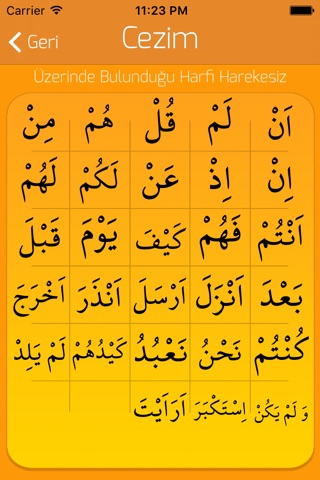 Carrier 11:23 PM
Geri Cezim
Üzerinde Bulunduğu Harfi Harekesiz
اَنْ لَمْ قُلْ هُمْ مِنْ
اِنْ اِذْ عَنْ لَكُمْ لَهُمْ
اَنْتُمْ فَهُمْ كَيْفَ يَوْمَ قَبْلَ
بَعْدَ اَنْزَلَ اَرْسَلَ اَنْذَرَ اَخْرَجَ
كُنْتُمْ نَحْنُ نَعْبُدُ كَيْدُهُمْ لَمْ يَلِدْ
وَ لَمْ يَكُنْ اِسْتَكْبَرَ اَرَاَيْتَ